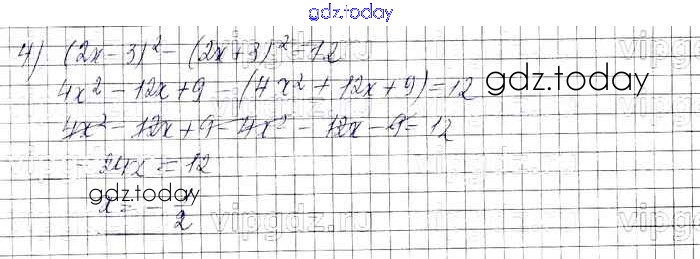 gdz.today
4) (2x - 3)² - (2x + 3)² = 12
4x² - 12x + 9 - (4x² + 12x + 9) = 12
gdz.today
4x² - 12x + 9 - 4x² - 12x - 9 = 12
24x = 12
gdz.today
x = - 1/2
vipgdz.ru